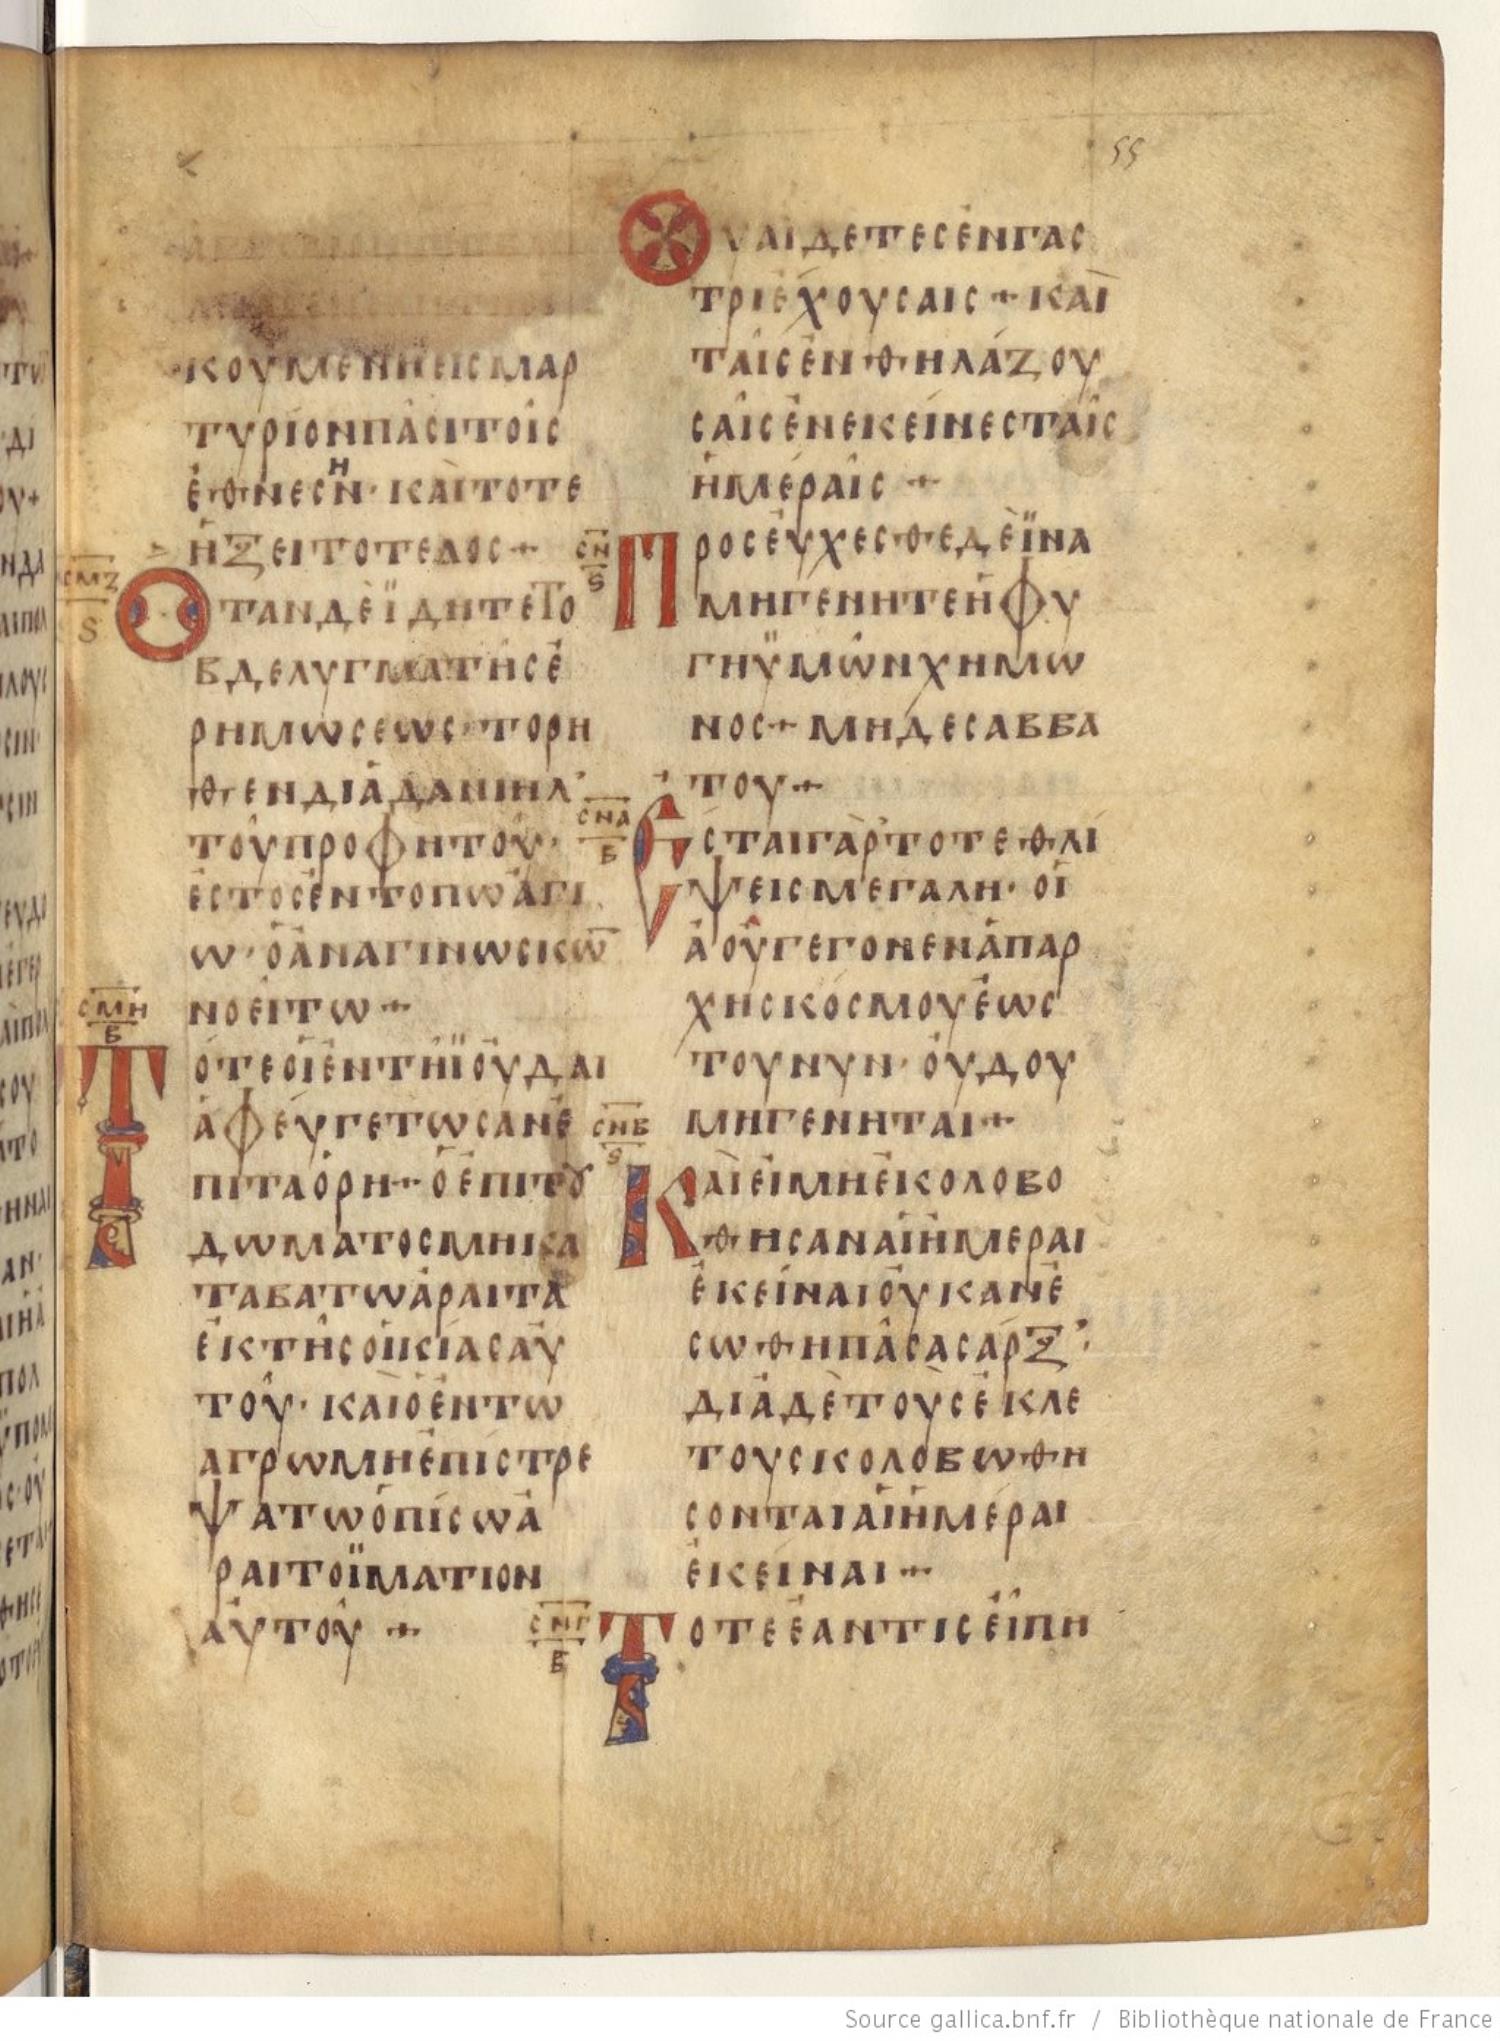 55
ΚΟΥΜΕΝΗΕΙCΜΑΡ
ΤΥΡΙΟΝΠΑCΙΤΟΙC
ΕΘΝΕCΗΝ· ΚΑΙΤΟΤΕ
ΗΞΕΙΤΟΤΕΛΟC+
CΜΖ
S
ΟΤΑΝΔΕΪΔΗΤΕΤΟ
ΒΔΕΛΥΓΜΑΤΗCΕ
ΡΗΜΩCΕΩC·ΤΟΡΗ
ΘΕΝΔΙΑΔΑΝΙΗΛ
ΤΟΥΠΡΟΦΗΤΟΥ·
ΕCΤΟCΕΝΤΟΠΩΑΓΙ
Ω·ΟΑΝΑΓΙΝΩCΚΩ̅
ΝΟΕΙΤΩ+
CΜΗ
Β
ΤΟΤΕΟΙΕΝΤΗΪΟΥΔΑΙ
ΑΦΕΥΓΕΤΩCΑΝΕ
ΠΙΤΑΟΡΗ+ΟΕΠΙΤȢ
ΔΩΜΑΤΟCΜΗΚΑ
ΤΑΒΑΤΩΑΡΑΙΤΑ
ΕΚΤΗCΟΙΚΙΑCΑΥ
ΤΟΥ· ΚΑΙΟΕΝΤΩ
ΑΓΡΩΜΗΕΠΙCΤΡΕ
ΨΑΤΩΟΠΙCΩΑ
ΡΑΙΤΟΪΜΑΤΙΟΝ
ΑΥΤΟΥ +
ΟΥΑΙΔΕΤΕCΕΝΓΑC
ΤΡΙΕΧΟΥCΑΙC+ΚΑΙ
ΤΑΙCΕΝΘΗΛΑΖΟΥ
CΑΙCΕΝΕΚΕΙΝΕCΤΑΙC
ΗΜΕΡΑΙC +
CΝ
S
ΠΡΟCΕΥΧΕCΘΕΔΕΪΝΑ
ΜΗΓΕΝΗΤΕΗΦΥ
ΓΗΫΜΩΝΧΗΜΩ
ΝΟC+ΜΗΔΕCΑΒΒΑ
ΤΟΥ+
CΝΑ
Β
ΕCΤΑΙΓΑΡΤΟΤΕΘΛΙ
ΨΕΙCΜΕΓΑΛΗ· ΟΙ
ΑΟΥΓΕΓΟΝΕΝΑΠΑΡ
ΧΗCΚΟCΜΟΥΕΩC
ΤΟΥΝΥΝ·ΟΥΔΟΥ
ΜΗΓΕΝΗΤΑΙ+
CΝΒ
S
ΚΑΙΕΙΜΗΕΚΟΛΟΒΟ
ΘΗCΑΝΑΙΗΜΕΡΑΙ
ΕΚΕΙΝΑΙΟΥΚΑΝΕ
CΩΘΗΠΑCΑCΑΡΞ
ΔΙΑΔΕΤΟΥCΕΚΛΕ
ΤΟΥCΚΟΛΟΒΩΘΗ
CΟΝΤΑΙΑΙΗΜΕΡΑΙ
ΕΚΕΙΝΑΙ+
CΝΓ
Β
ΤΟΤΕΕΑΝΤΙCΕΙΠΗ
Source gallica.bnf.fr / Bibliothèque nationale de France